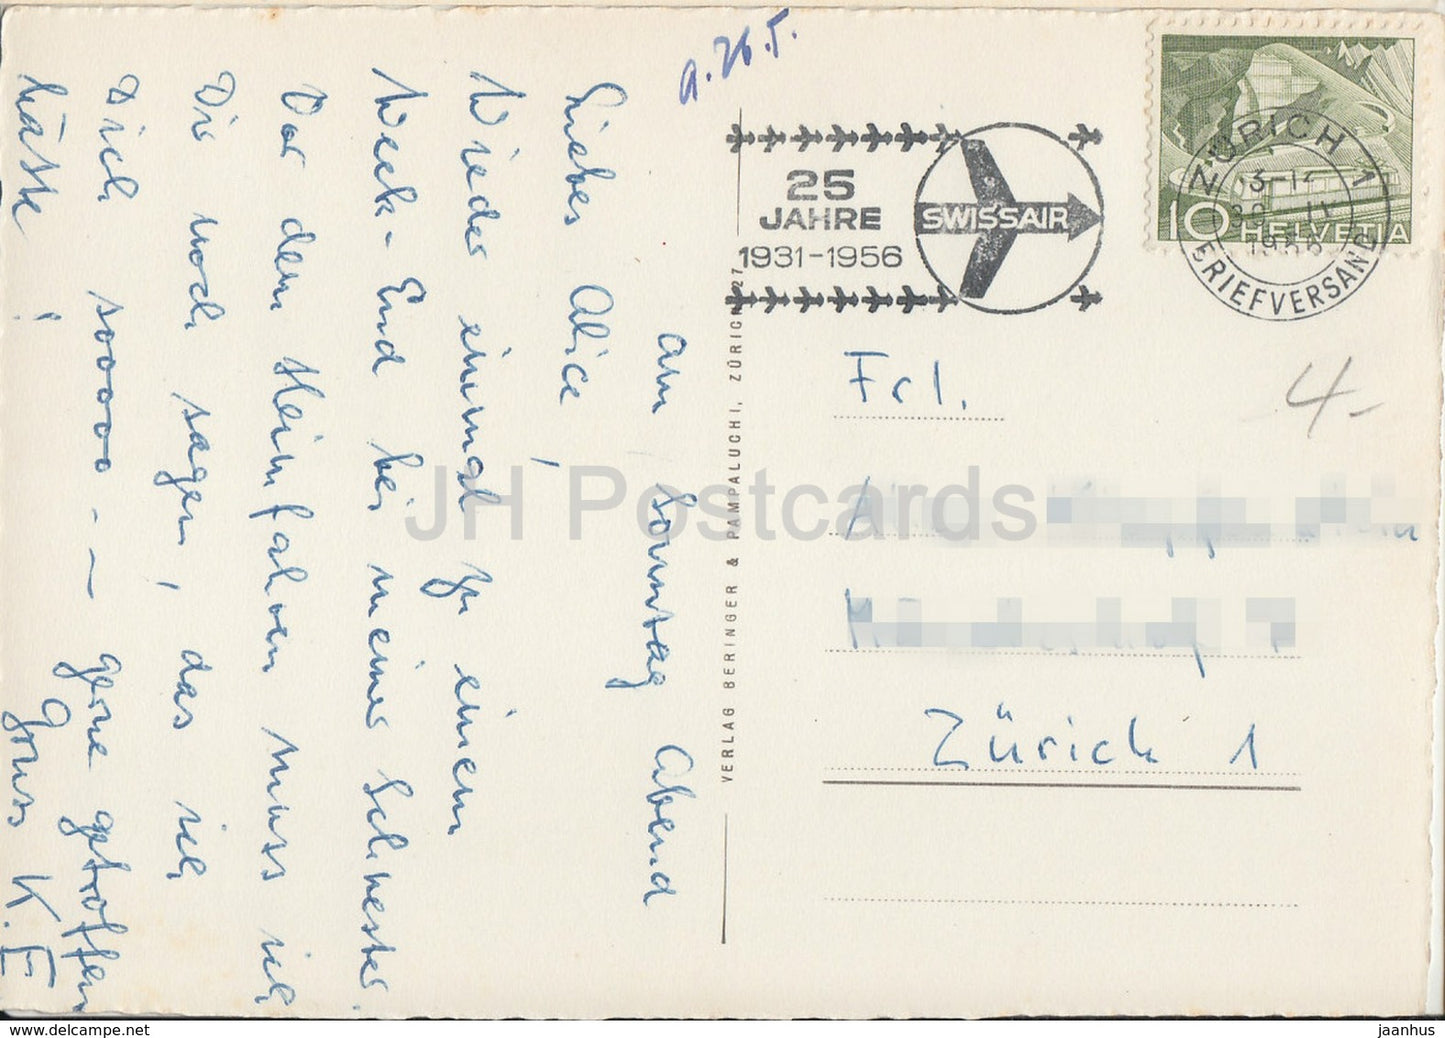 am Sonntag Abend
Liebes Alice,
Wieder einmal zu einem
Week-End bei meiner Schwester.
Vor dem Heimfahren muss ich
Dir noch sagen, das ich
Dich soooo -- gerne getroffen
hätte! Gruss K. E
a. 26.5.
25
JAHRE
1931-1956
SWISSAIR
ZÜRICH 1
BRIEFVERSAND
10 HELVETIA
4.-
Frl.
Zürich 1
VERLAG BERINGER & PAMPALUCHI, ZÜRICH 27
JH Postcards
hip-stamp.com
jaanhus